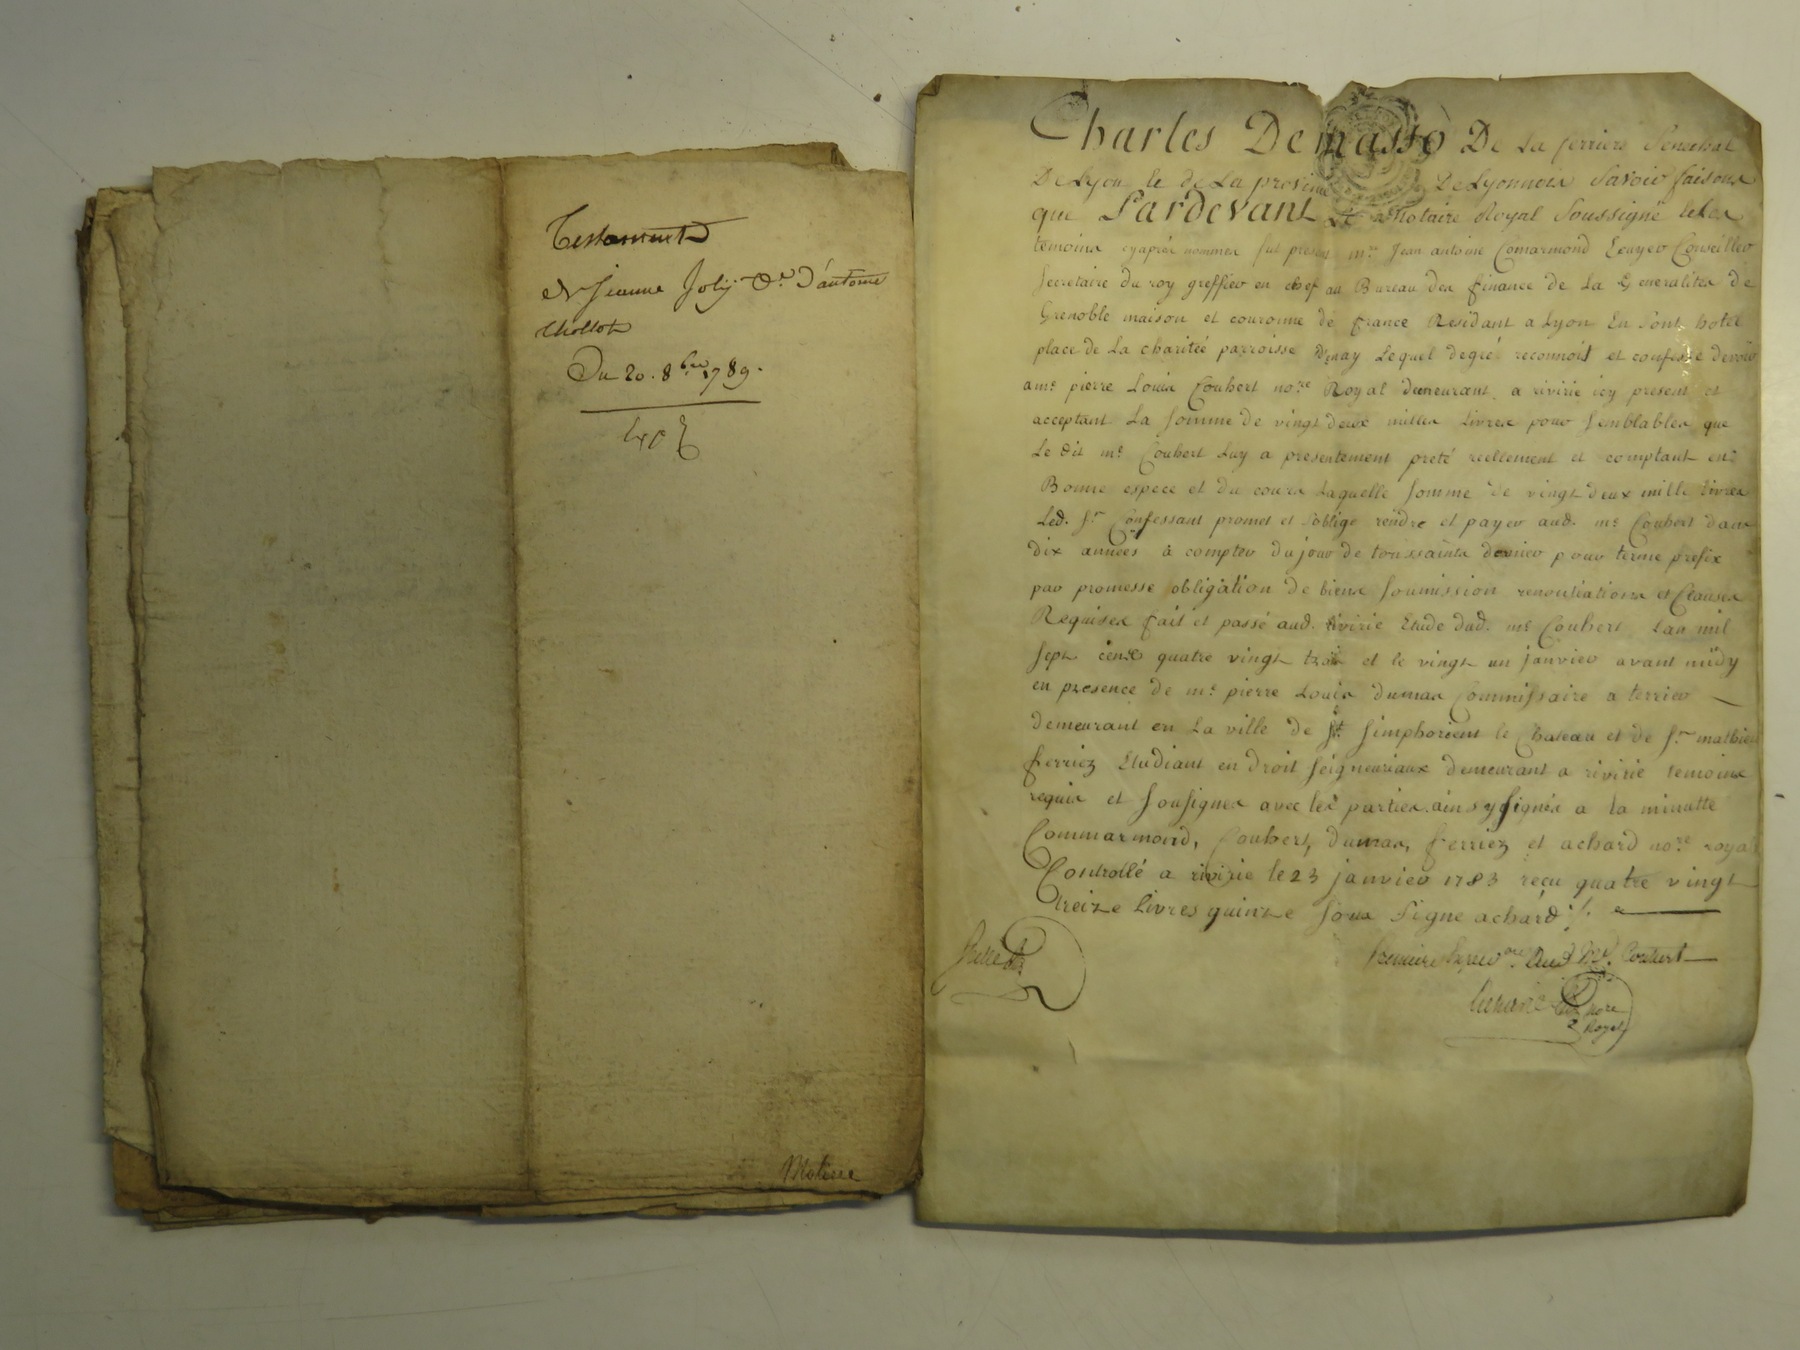 Testament
Jeanne Joly d'antoine
Chollot
Du 20. 8bre 1789.
Charles Demasso De La ferriere Senechal
De Lyon et de La province De Lyonnois Savoir faisons
que Pardevant Le Notaire Royal Soussigné et les
temoins cyaprès nommes fut present mr. Jean antoine Comarmond Ecuyer Conseiller
Secretaire du roy greffier en chef au Bureau des finance de La Generalitée de
Grenoble maison et couronne de france Residant a Lyon En Sont hotel
place de La charitée parroisse D'enay Lequel degré reconnoit et confesse devoir
a me. pierre Louis Coubert nore Royal demeurant a rivirie icy present et
acceptant La Somme de vingt deux milles Livres pour Semblables que
Le dit me. Coubert Luy a presentement preté reellement et comptant en
Bonne espece et du cours Laquelle Somme de vingt deux mille livres
Led. Sr Confessant promet et S'oblige rendre et payer aud. me. Coubert dans
dix années à compter du jour de toussaints dernier pour terme prefix
par promesse obligation de biens Soumission renontiations et Clauses
Requises fait et passé aud. rivirie Etude dud. me. Coubert Lan mil
Sept cents quatre vingt trois et le vingt un janvier avant midy
en presence de me. pierre Louis dumas Commissaire a terrier
demeurant en La ville de St. Simphorient le Chateau et de Sr mathieu
ferriez Etudiant en droit Seigneuriaux demeurant a rivirie temoins
requis et Sousignes avec les parties ainsy Signés a la minutte
Commarmond, Coubert, dumas, ferriez et achard nore royal
Controllé a rivirie le 23 janvier 1783 reçu quatre vingt
treize Livres quinze Sous Signe achard
Premiere Exped Aud Me. Coubert
achard nore
Royal